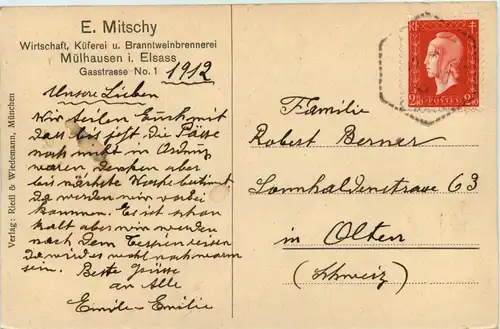 E. Mitschy
Wirtschaft, Küferei u. Branntweinbrennerei
Mülhausen i. Elsass
Gasstrasse No. 1
1912
Unsere Lieben
Wir teilen Euch mit
dass bis jetzt die Pässe
noch nicht in Ordnung
waren, denken aber
bis nächste Woche bestimmt.
Da werden wir vorbei
kommen. Es ist schon
kalt aber wir werden
nach dem
da wird es recht
sein. Beste Grüsse
an Alle
Emile-Emilie
Verlag: Riedl & Wiedemann, München
RF
2f40 POSTES 2f40
Familie
Robert Berner
Sonnhaldenstrasse 63
in Olten
(Schweiz)